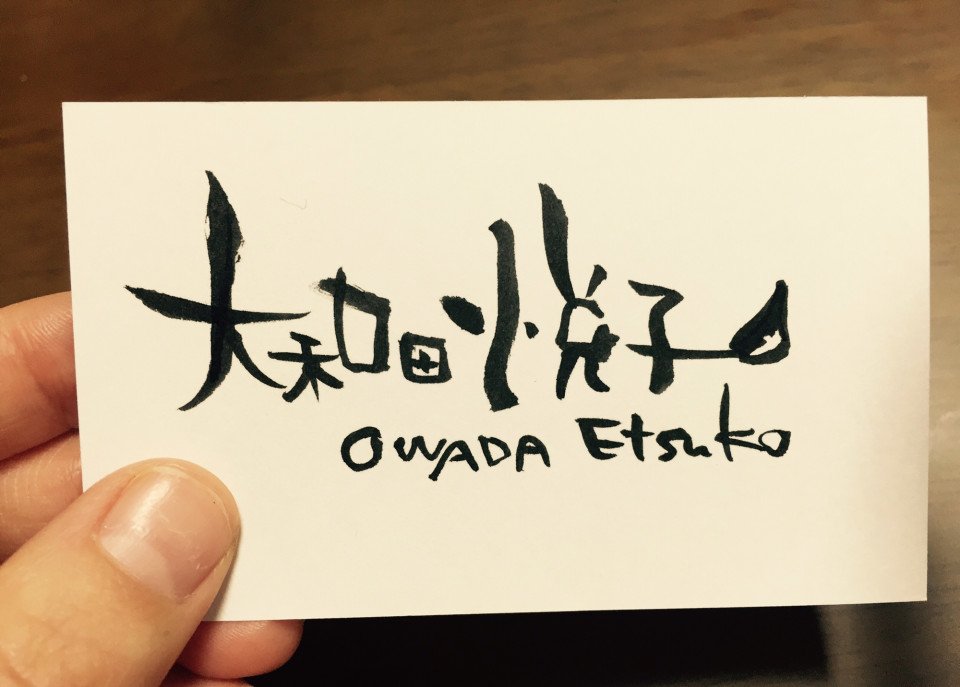 大和田悦子
OWADA Etsuko